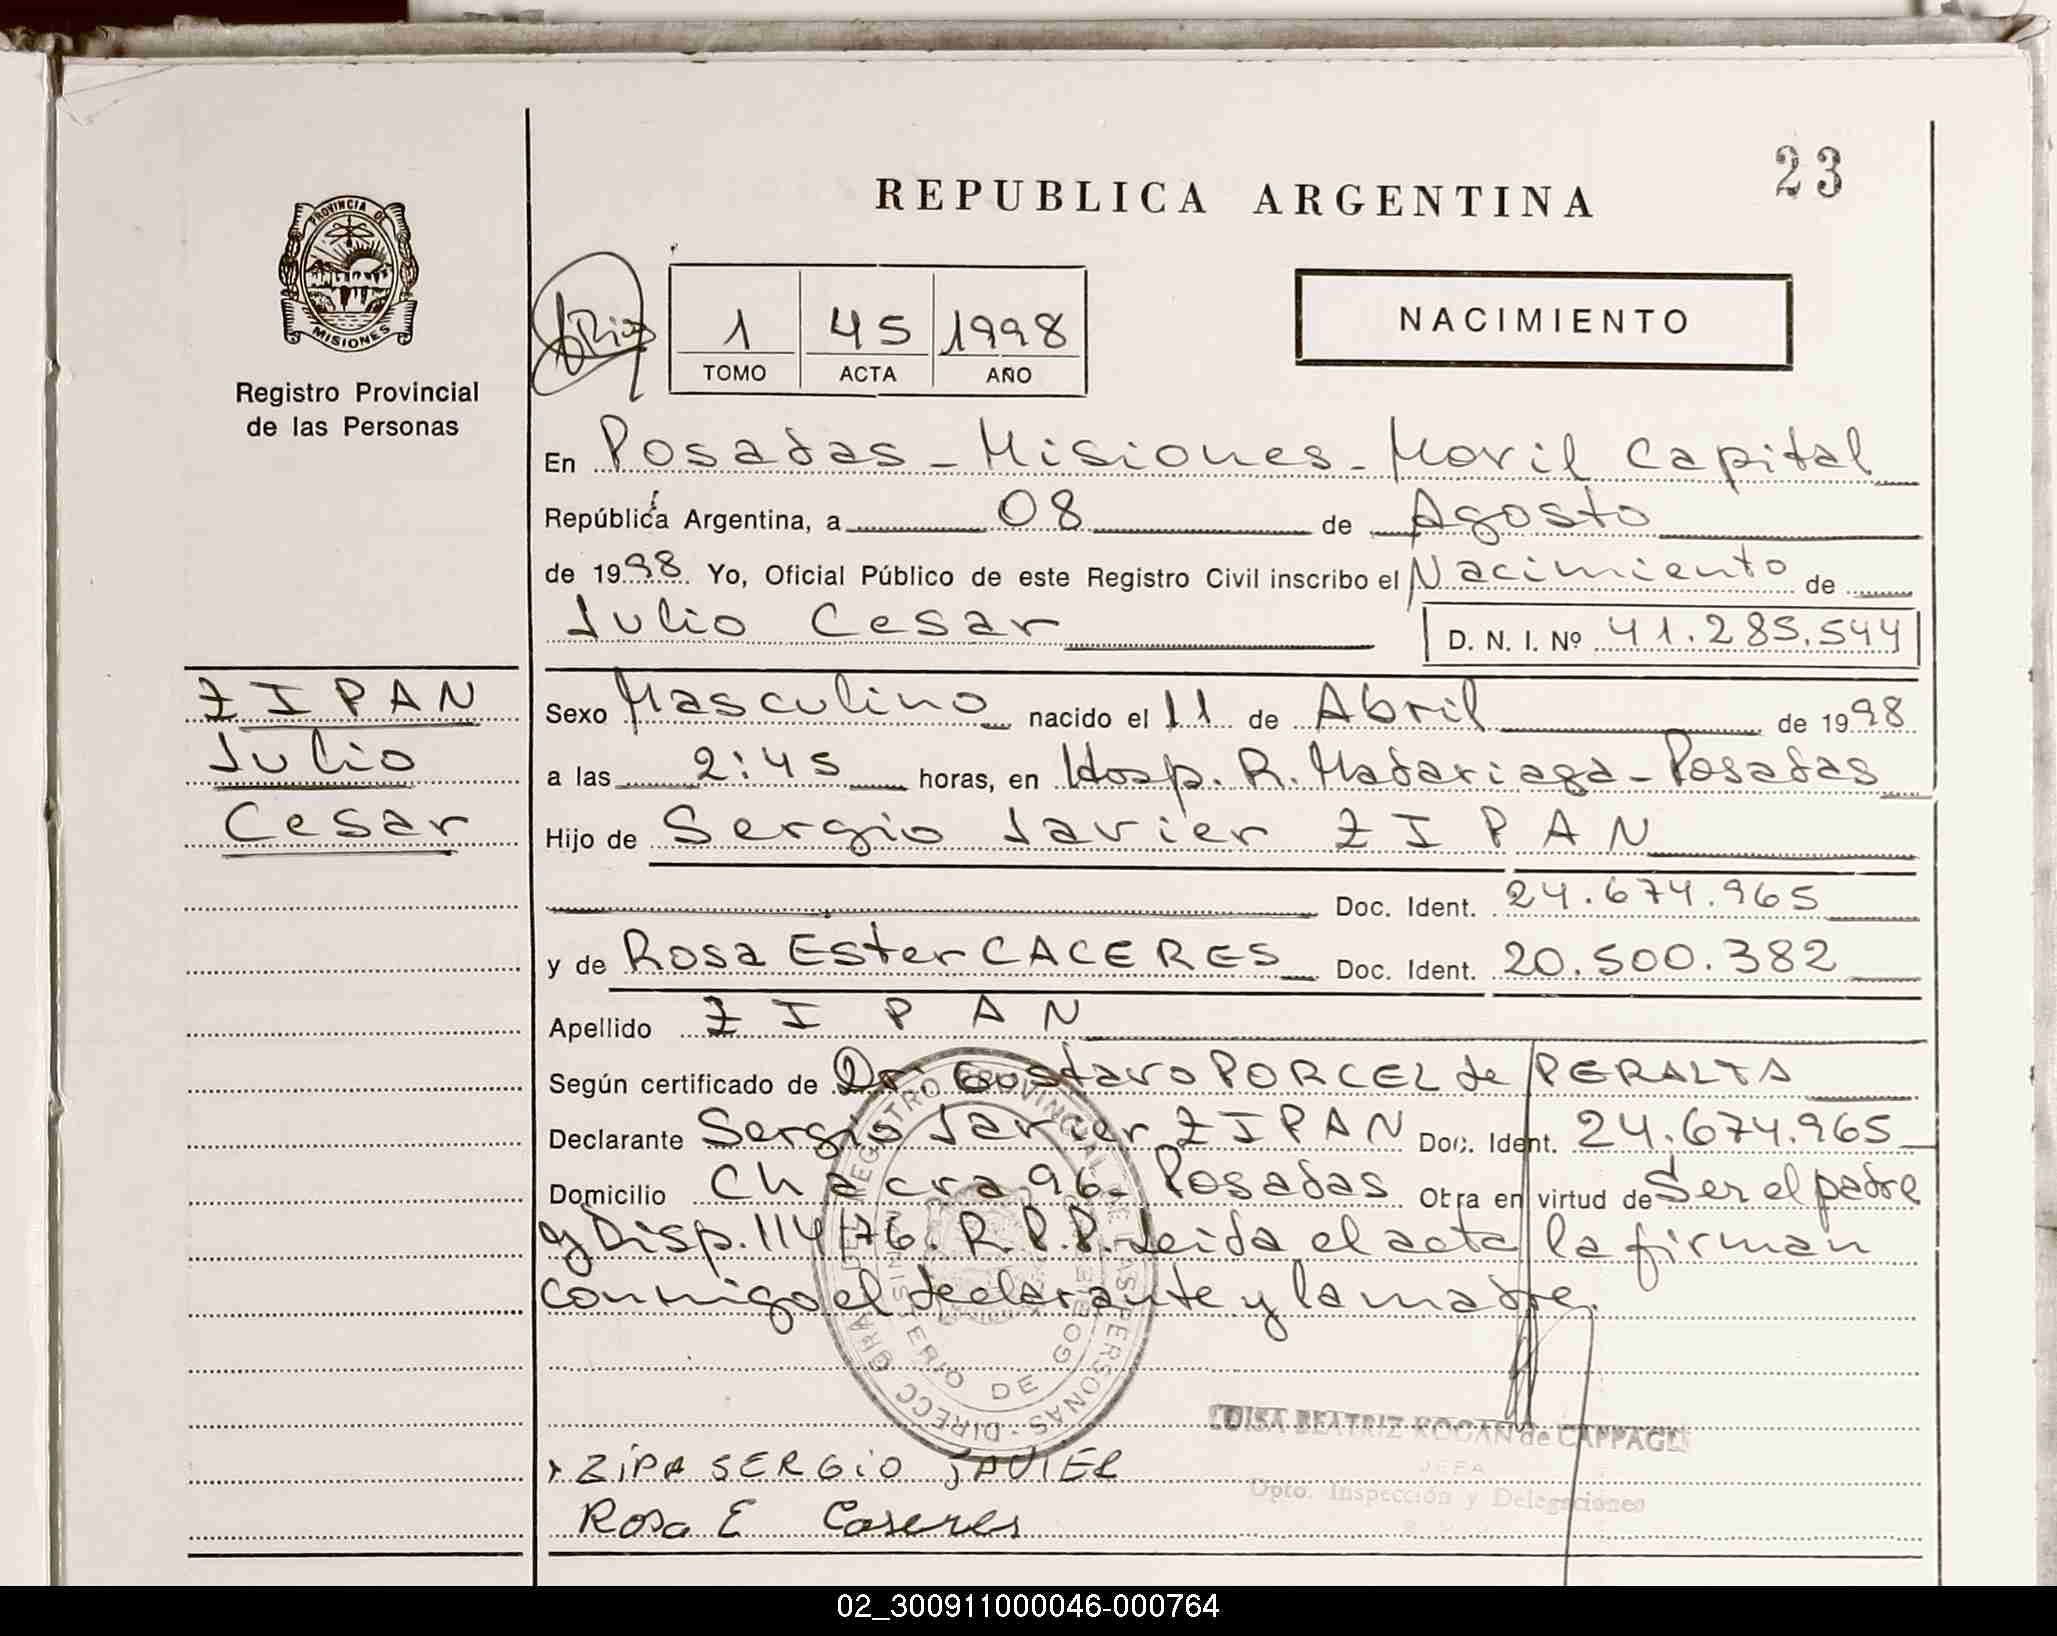 23
REPUBLICA ARGENTINA
PROVINCIA DE
MISIONES
Registro Provincial
de las Personas
1 45 1998
TOMO ACTA AÑO
NACIMIENTO
En Posadas - Misiones - Movil Capital
República Argentina, a 08 de Agosto
de 1998 Yo, Oficial Público de este Registro Civil inscribo el Nacimiento de
Julio Cesar D. N. I. Nº 41.285.544
ZIPAN
Julio
Cesar
Sexo Masculino nacido el 11 de Abril de 1998
a las 2:45 horas, en Hosp. R. Madariaga - Posadas
Hijo de Sergio Javier ZIPAN
Doc. Ident. 24.674.965
y de Rosa Ester CACERES Doc. Ident. 20.500.382
Apellido ZIPAN
Según certificado de Dr. Gustavo PORCEL de PERALTA
Declarante Sergio Javier ZIPAN Doc. Ident. 24.674.965
Domicilio Chacra 96 - Posadas Obra en virtud de Ser el padre
y Disp. 114/76. R.P.P. Leida el acta la firman
conmigo el declarante y la madre.
REGISTRO PROVINCIAL DE LAS PERSONAS - DIRECC GRAL
MINISTERIO DE GOBIERNO
LUISA BEATRIZ KOGAN de CAPPAGLI
JEFA
Dpto. Inspección y Delegaciones
ZIPA SERGIO JAVIER
Rosa E Caseres
02_300911000046-000764